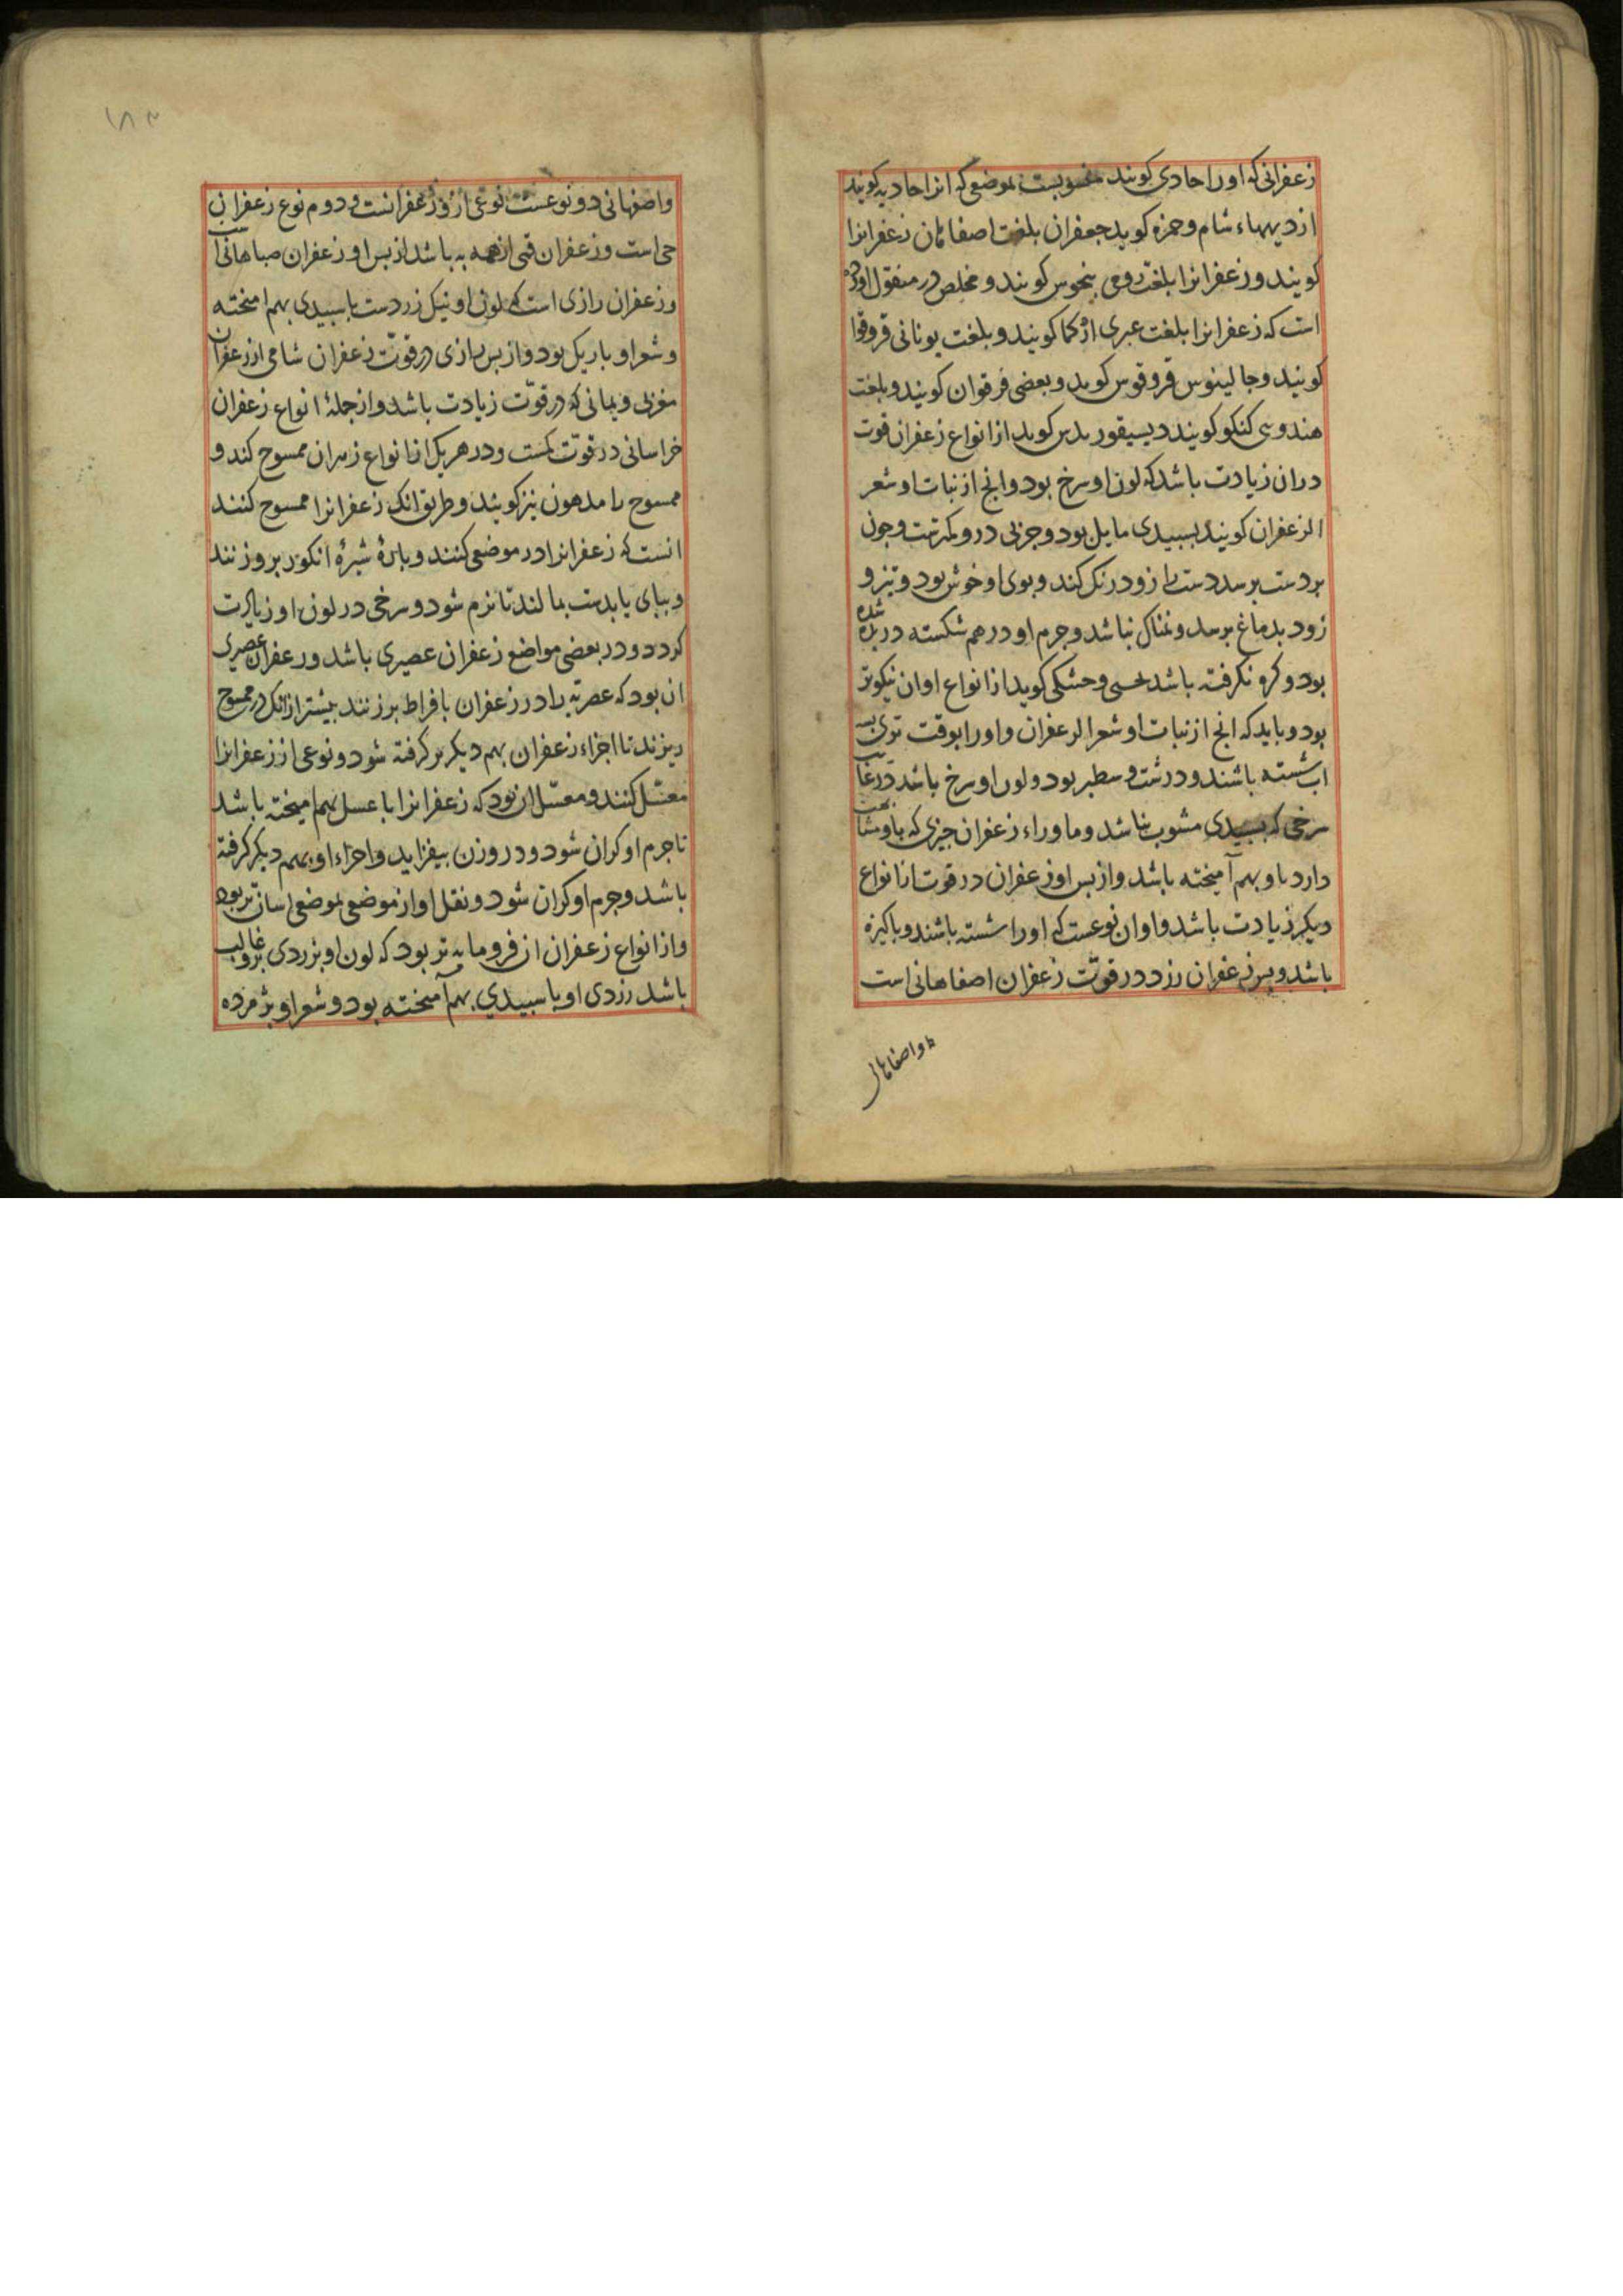 زعفرانی که اورا حادی کویند منسوبست بموضعی که انرا حادیه کویند
از دیهاء شام و حمزه کوید جعفران بلغت اصفاهان زعفرانرا
کویند و زعفرانرا بلغت رومی کویند و مخلص در منقول اورده
است که زعفرانرا بلغت عبری کویند و بلغت یونانی قروقوا
کویند و جالینوس قروقوس کوید و بعضی فرقوان کویند و بلغت
هندوی کنکو کویند دیسیقوریدس کوید از انواع زعفران قوت
دران زیادت باشد که لون او سرخ بود وانج از نبات او شعر
الزعفران کویند بسبیدی مایل بود و جزبی درو کمترست و جون
بر دست برسد دست را زود رنک کند و بوی او خوش بود و تیز و
زود بدماغ برسد و نمناک نباشد و جرم او درهم شکسته شده
بود و کرو نکرفته باشد و حشکی کوید از انواع او ان نیکوتر
بود و باید که انج از نبات او شعر الزعفران و اورا بوقت
اب شسته باشند و درشت و سطبر بود و لون او سرخ باشد در غایت
سرخی که بسبیدی مشوب نباشد و ماوراء زعفران جیزی که باو مشابهت
دارد باو بهم آمیخته باشد و از بس او زعفران در قوت از انواع
دیکر زیادت باشد و او ان نوعست که اورا شسته باشند و باکیزه
باشد و بس زعفران زرد در قوّت زعفران اصفاهانی است
واصفاهانی
۱۸۳
واصفهانی دو نوعست نوعی ازو زعفرانست و دوم نوع زعفران
جی است و زعفران قمی از همه به باشد از بس او زعفران صباهانی است
و زعفران رازی است که لون او نیک زردست با سبیدی بهم امیخته
و شعر او باریک بود و از بس رازی در قوّت زعفران شامی از زعفران
مغربی و یمانی که در قوّت زیادت باشد و از جملهٔ انواع زعفران
خراسانی در قوّت کمست و در هر یک از انواع زعفران ممسوح کند و
ممسوح را مدهون نیز کویند و طریق انک زعفرانرا ممسوح کنند
انست که زعفرانرا در موضعی کنند و بارهٔ شیرهٔ انکور برو زنند
و ببای یا بدست بمالند تا نرم شود و سرخی در لون او زیادت
کردد و در بعضی مواضع زعفران عصیری باشد و زعفران عصیری
ان بود که را در زعفران بافراط برزنند بیشتر از انک در ممسوح
ریزند تا اجزاء زعفران بهم دیکر بر کرفته شود و نوعی از زعفرانرا
معسّل کنند و معسّل ان بود که زعفرانرا با عسل بهم امیخته باشد
تا جرم او کران شود و در وزن بیفزاید و اجزاء او بهم دیکر کرفته
باشد و جرم او کران شود و نقل او از موضعی بموضعی اسان تر بود
و از انواع زعفران ان فرومایه تر بود که لون او بزردی غالب
باشد زردی او با سبیدی بهم آمیخته بود و شعر او بژمرده